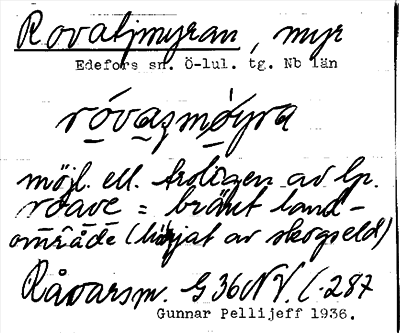 Rovatjmyran, myr
Edefors sn. Ö-lul. tg. Nb län
róvazmóyra
möjl. ell. troligen av lp.
roave = bränt land-
område (härjat av skogseld)
Råvarsm. G 36 NV. (-287
Gunnar Pellijeff 1936.